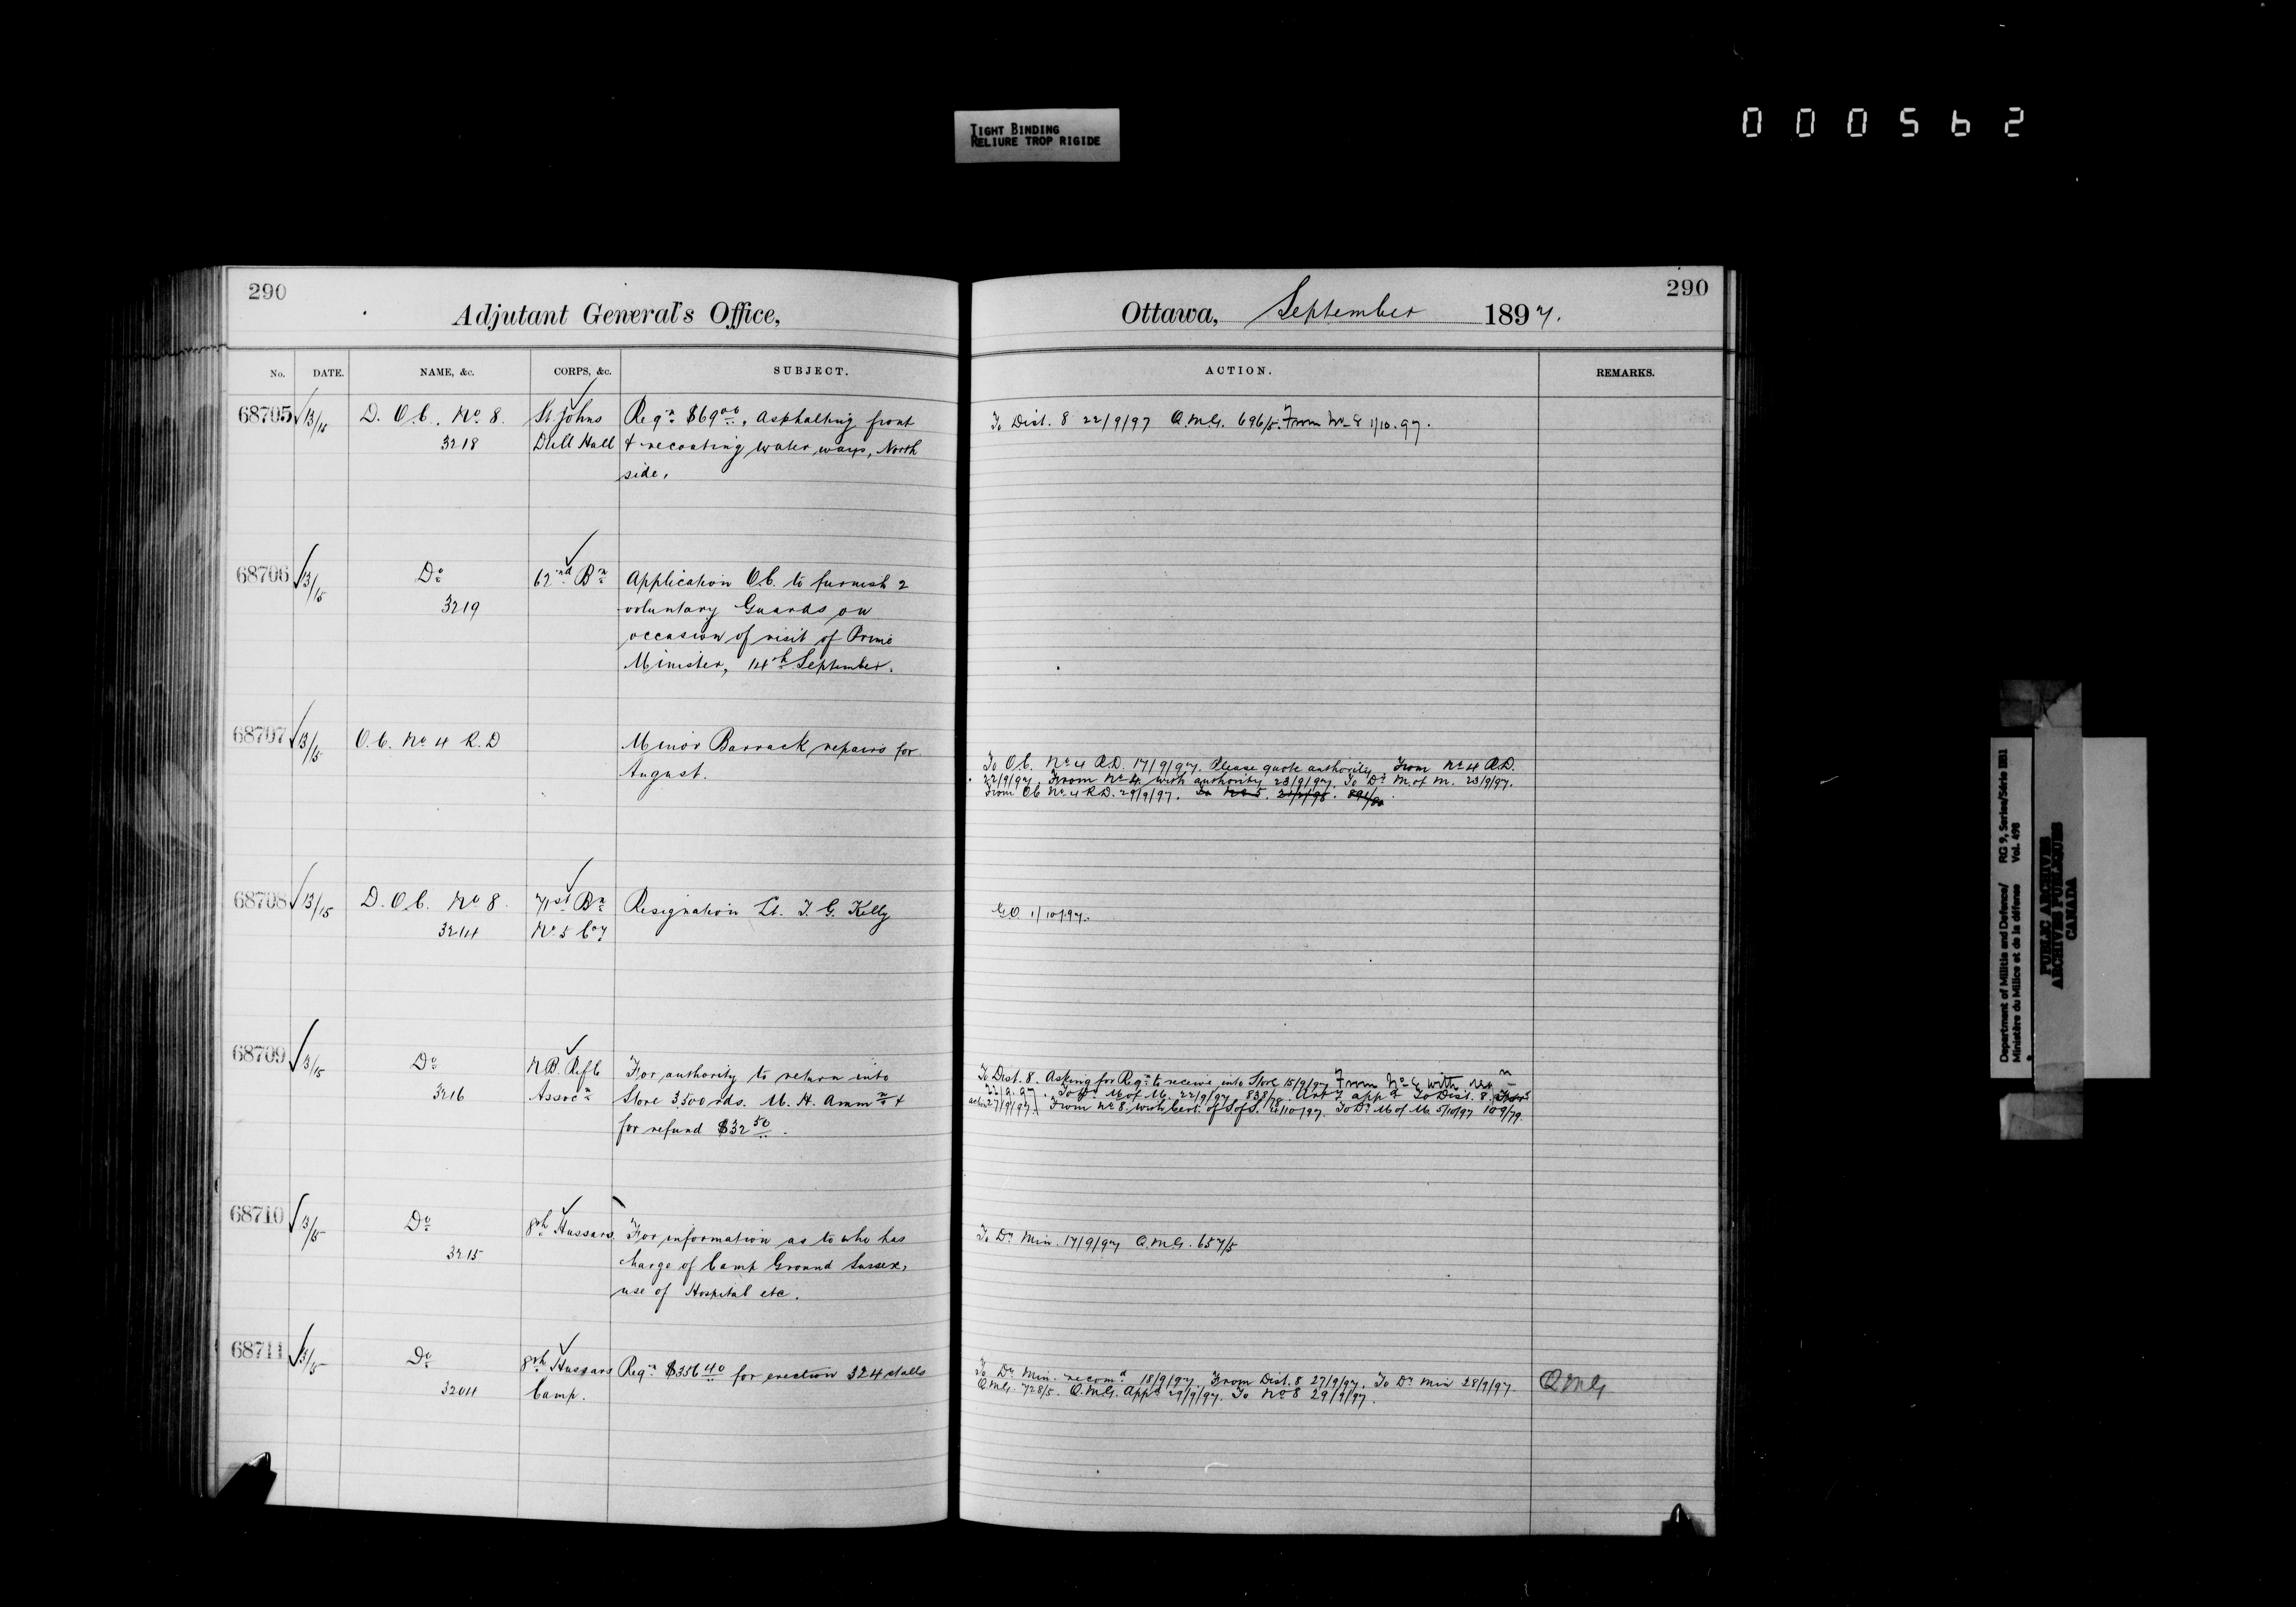 TIGHT BINDING
RELIURE TROP RIGIDE
000562
290
Adjutant General's Office,
Ottawa, September 1897.
290
No. DATE. NAME, &c. CORPS, &c. SUBJECT. ACTION. REMARKS.
68705 13/15 D. O. C. No 8. St Johns Reqn $69.00, Asphalting front
3218 Drill Hall & recoating water ways, North
side,
To Dist. 8 22/9/97 Q.M.G. 696/5. From No 8 1/10.97.
68706 13/15 Do 62nd Bn Application O.C. to furnish 2
3219 voluntary Guards on
occasion of visit of Prime
Minister, 14th September.
68707 13/15 O.C. No 4 R.D Minor Barrack repairs for
August.
To O.C. No 4 R.D. 17/9/97. Please quote authority From No 4 R.D.
22/9/97. From No 4. with authority 23/9/97. To Dr M. of M. 23/9/97.
From OC No 4 R.D. 29/9/97.
68708 13/15 D. O. C. No 8. 71st Bn Resignation Lt. J. G. Kelly
3214 No 5 Coy
G.O. 1/10/97.
68709 13/15 Do N.B. Rifle For authority to return into
3216 Assocn Store 3500 rds. M. H. Ammn &
for refund $32.50.
To Dist. 8. Asking for Reqn to receive into Store 15/9/97 From No 8 with
22/9.97. To Dr M of M. 22/9/97 838/78. appd To Dist. 8.
27/9/97. From No 8. with Cert. of S of S. 4/10/97. To Dr M of M. 5/10/97 109/79.
68710 13/15 Do 8th Hussars For information as to who has
3215 charge of Camp Ground Sussex,
use of Hospital etc.
To Dr Min. 17/9/97 Q.M.G. 657/5
68711 13/15 Do 8th Hussars Reqn $356.40 for erection 324 stalls
3204 Camp.
To Dr Min. recomd 18/9/97 From Dist. 8 27/9/97. To Dr Min 28/9/97. QMG
Q.M.G. 728/5. Q.M.G. Appd 29/9/97. To No 8 29/9/97.
Department of Militia and Defence/ RG 9, Series/Série IIB1
Ministère du Milice et de la défense Vol. 498
PUBLIC ARCHIVES
ARCHIVES PUBLIQUES
CANADA